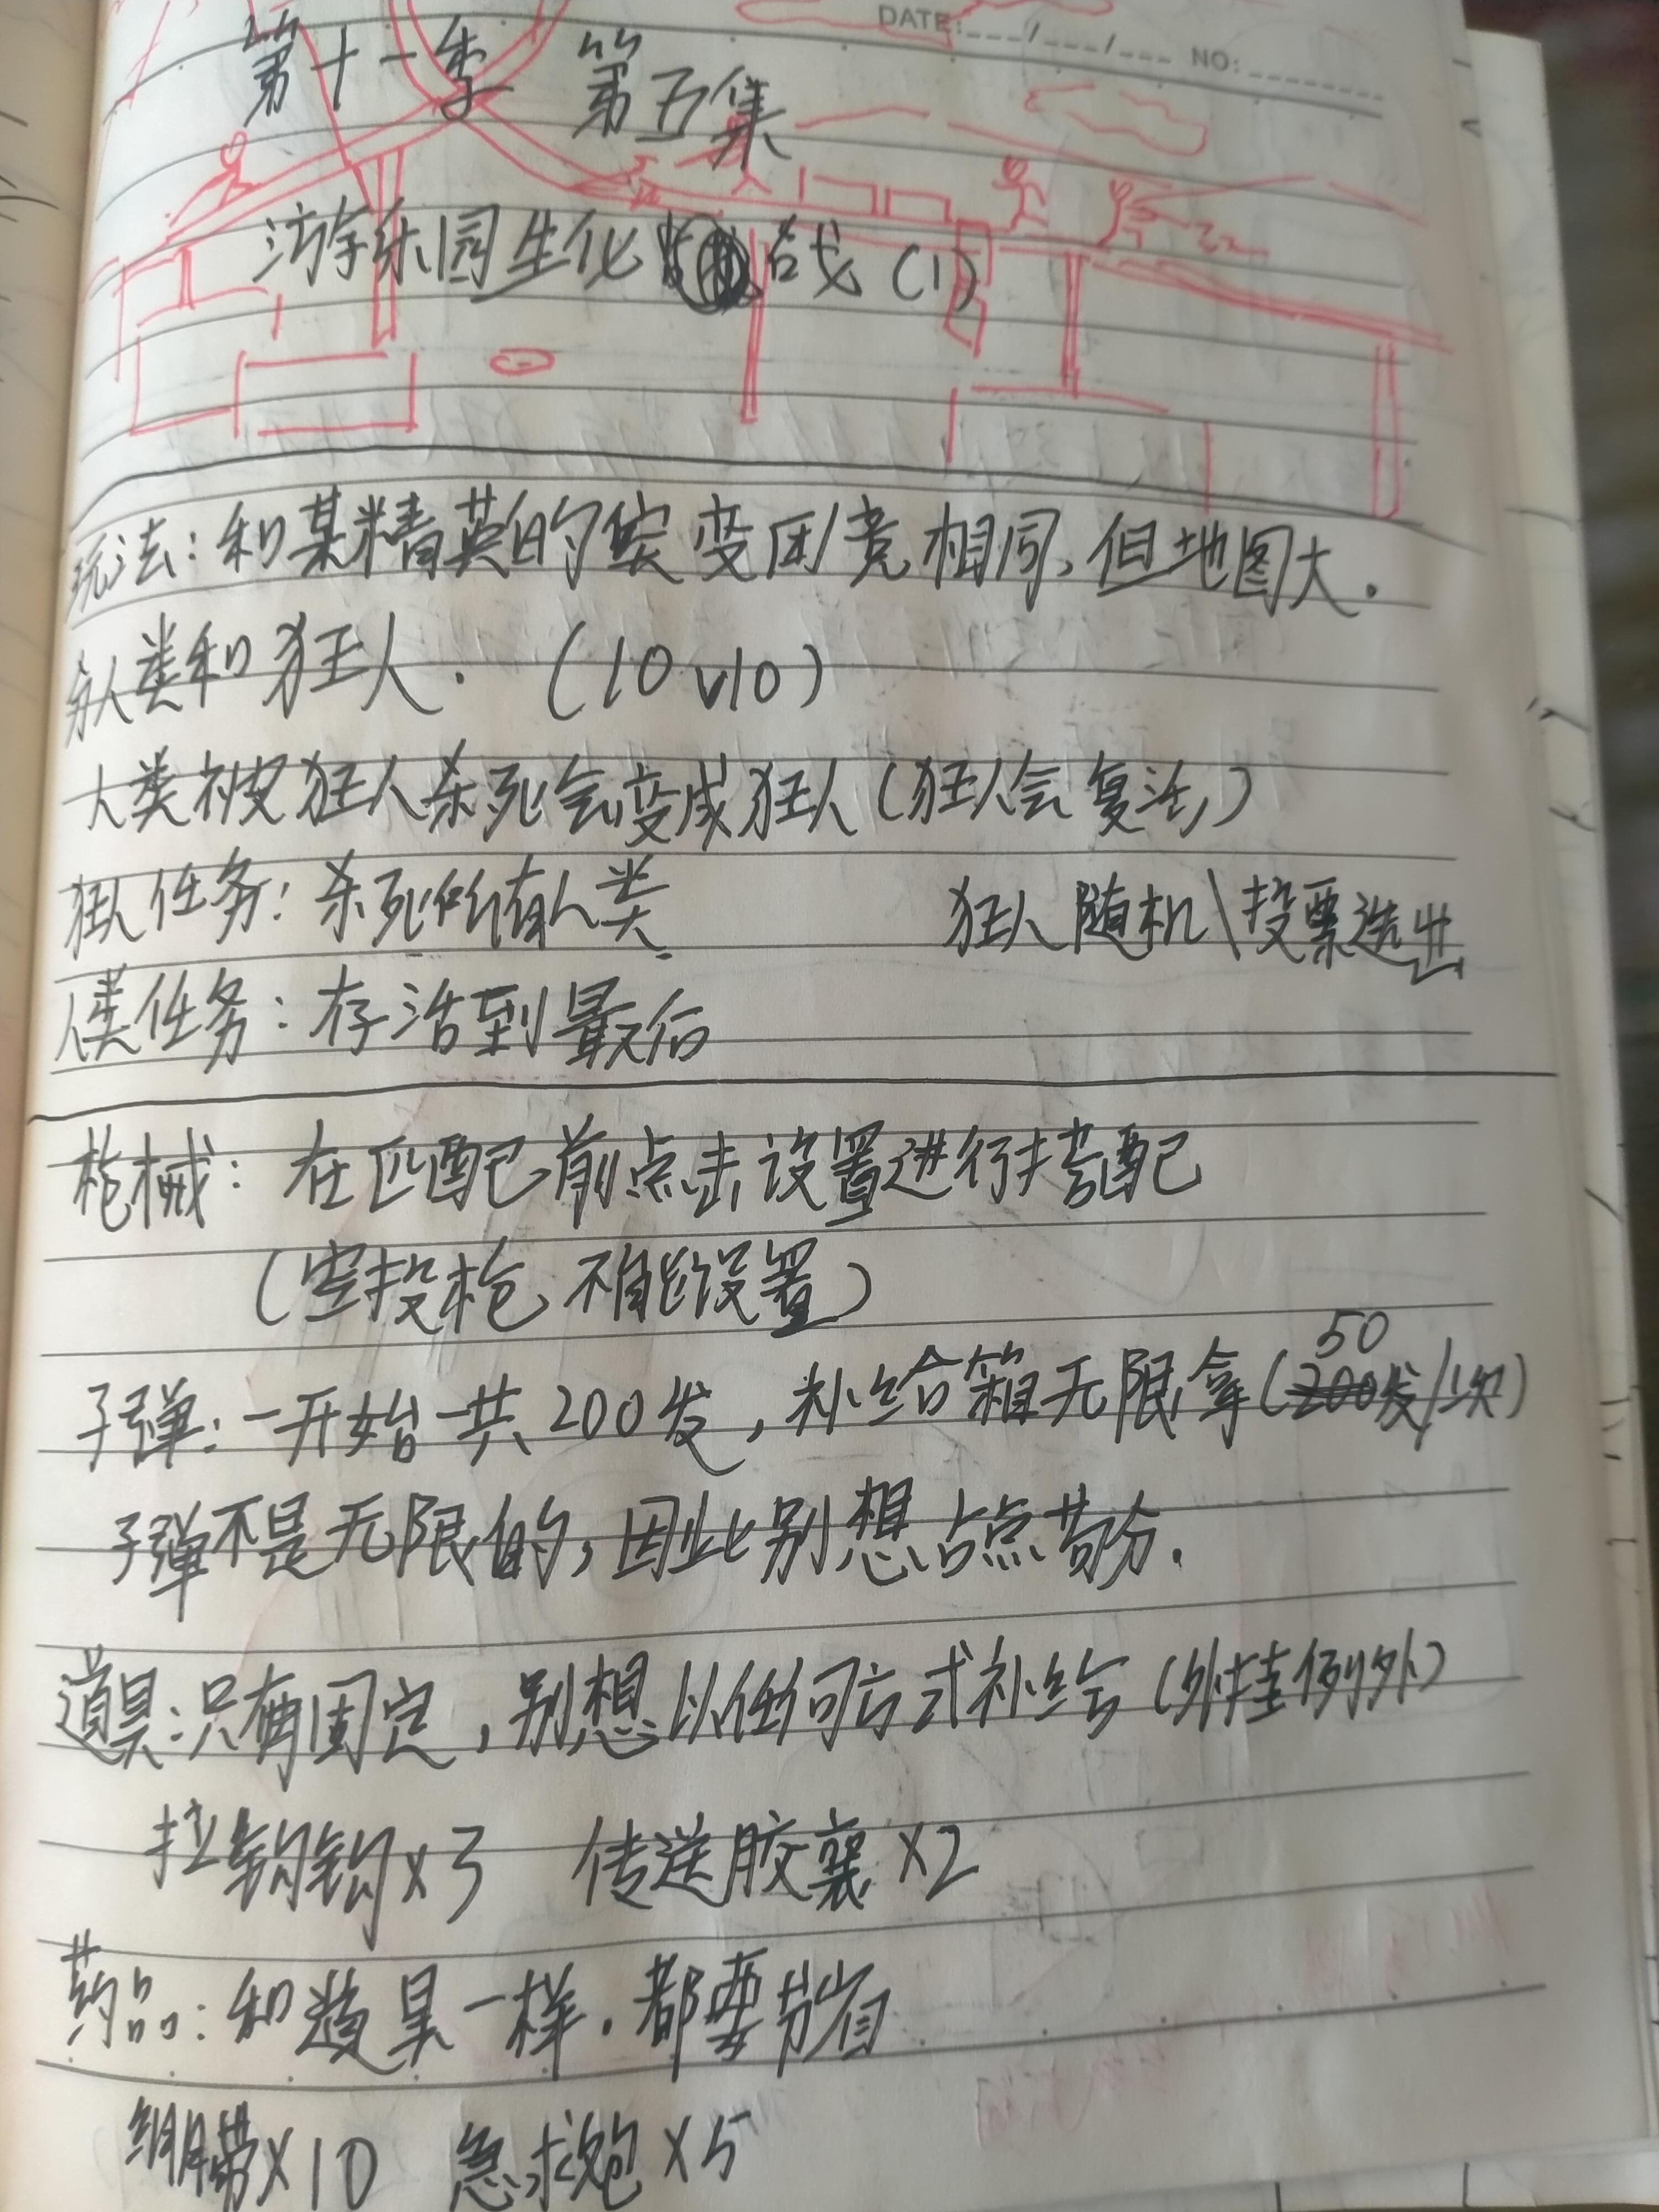 DATE: / / NO:
第十一季 第五集
游乐园生化 战(1)
玩法:和某精英的突变团竞相同,但地图大.
分人类和狂人.(10v10)
人类被狂人杀死会变成狂人(狂人会复活)
狂人任务:杀死所有人类
狂人随机\投票选出
人类任务:存活到最后
枪械:在匹配前点击设置进行搭配
(空投枪不能设置)
50
子弹:一开始一共200发,补给箱无限拿(200发/1次)
子弹不是无限的,因此别想占点苟分.
道具:只有固定,别想以任何方式补给(外挂例外)
拉钩钩×3 传送胶襄×2
药品:和道具一样.都要节省
绷带×10 急求包×5